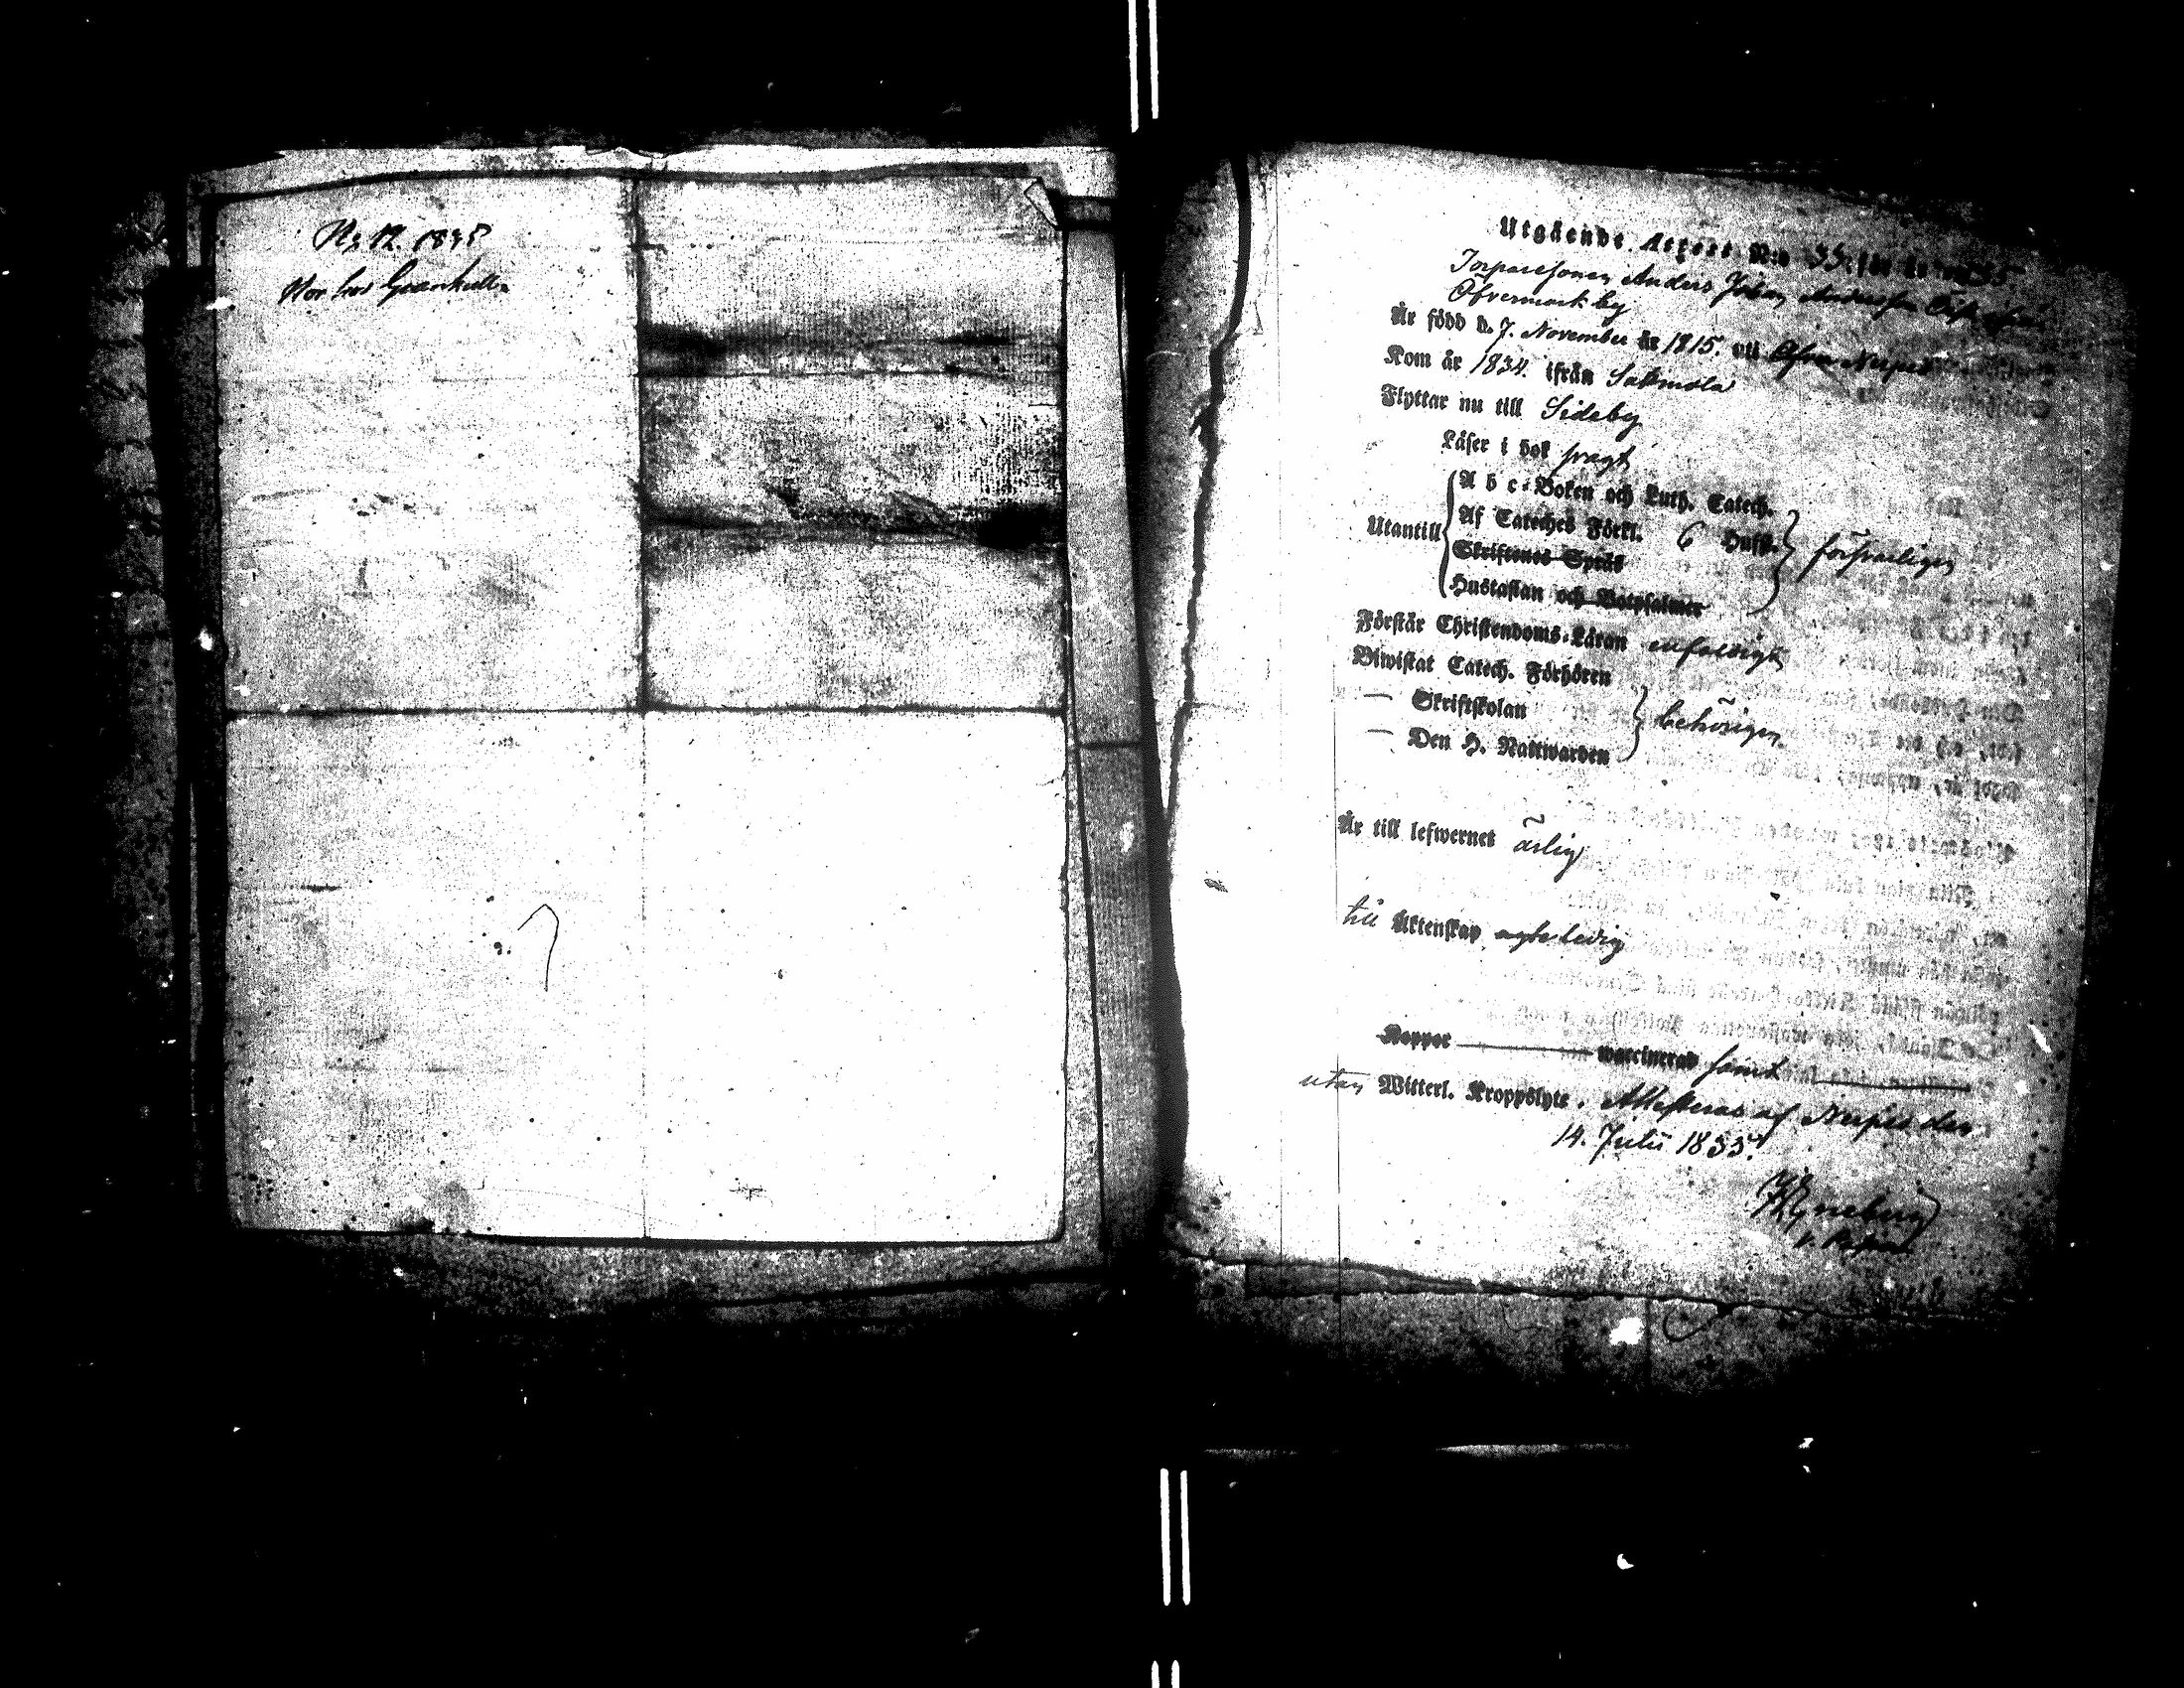 No 12. 1835
Utgående Attest N:o 33. för år 1835
Torparesonen Anders Johan Andersson
Öfvermark by
Är född d. 7. November år 1815. uti Öfver Nerpes
Kom år 1834. ifrån Sastmola
Flyttar nu till Sideby
Läser i bok svagt
A b c-Boken och Luth. Catech.
Utantill Af Cateches Förkl. 6 Hufst. försvarligen
Skriftenes Språk
Hustaflan och Botpsalmer
Förstår Christendoms-Läran enfaldigt
Biwistat Catech. Förhören
— Skriftskolan behörigen
— Den H. Nattwarden
Är till lefwernet ärlig
till Äktenskap ledig
Koppor waccinerad samt
utan Witterl. Kroppslyte. Attesteras af Nerpes den
14. Julii 1835.